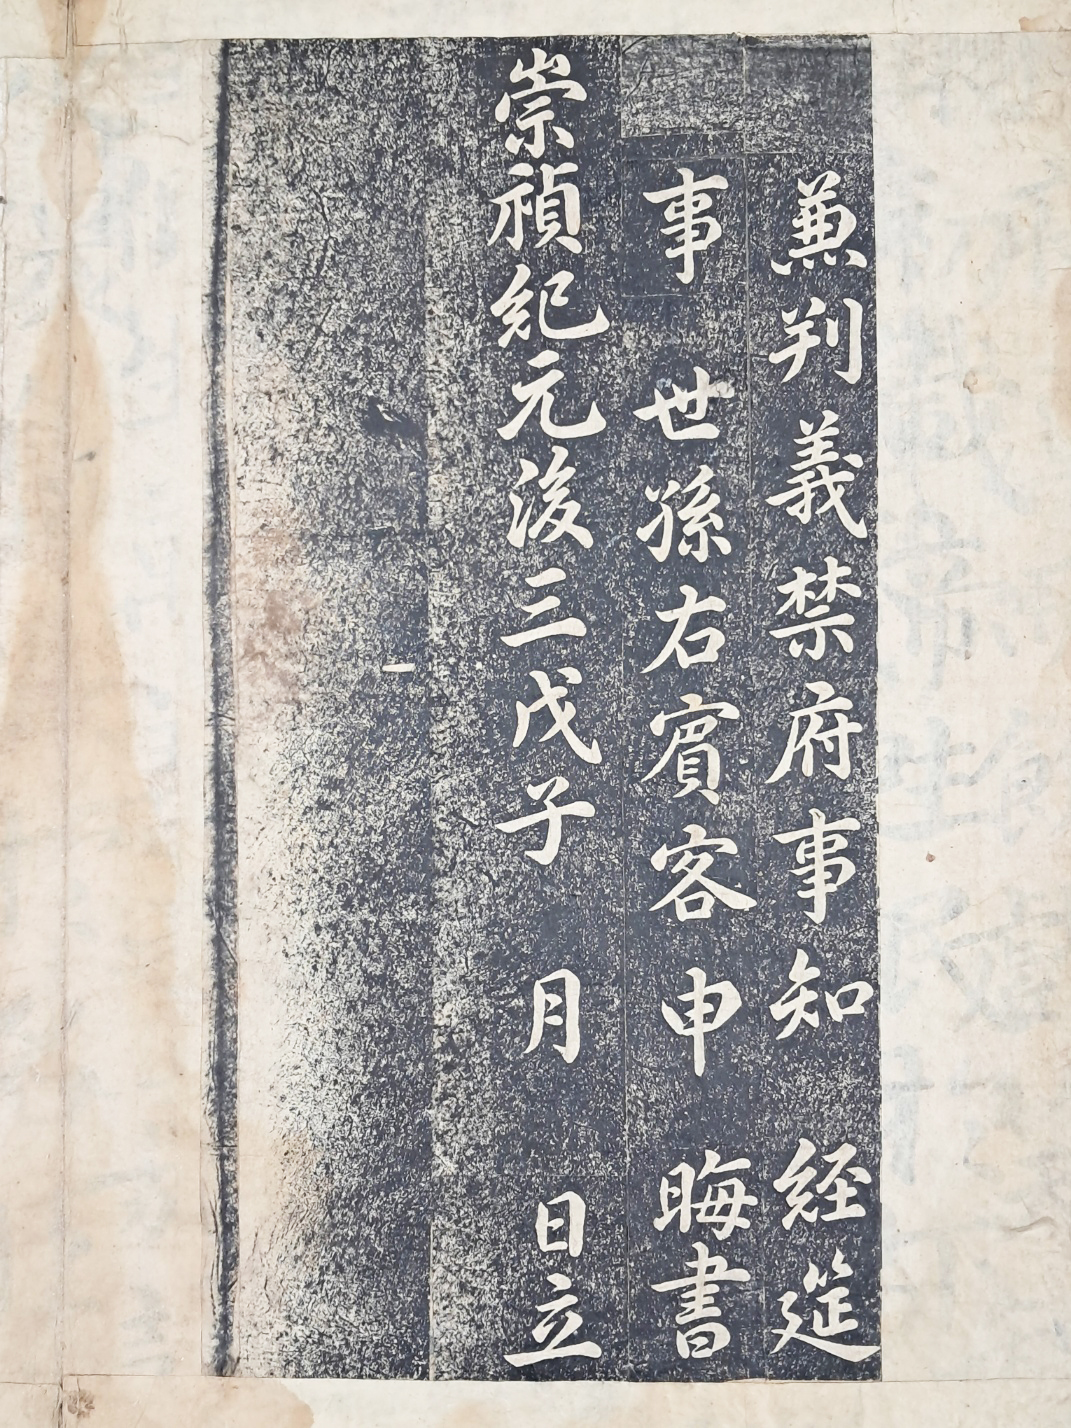 兼判義禁府事知 經筵
事 世孫右賓客申 晦書
崇禎紀元後三戊子 月 日立